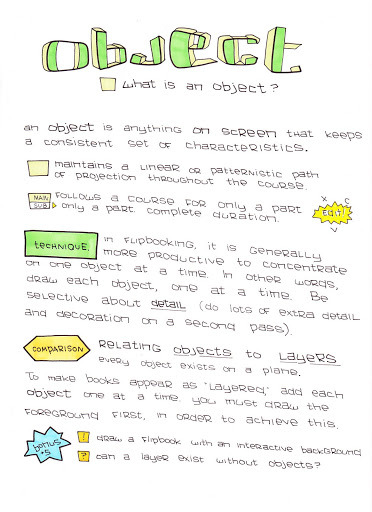 Object
What is an object?
an object is anything on screen that keeps
a consistent set of characteristics.
maintains a linear or patternistic path
of projection throughout the course.
main
sub
follows a course for only a part
only a part complete duration.
x c
Edit!
v
technique,
in flipbooking, it is generally
more productive to concentrate
on one object at a time. In other words,
draw each object, one at a time. Be
selective about detail (do lots of extra detail
and decoration on a second pass).
comparison
Relating objects to layers
every object exists on a plane.
To make books appear as "layered," add each
object one at a time. you must draw the
foreground first, in order to achieve this.
bonus
+5
! draw a flipbook with an interactive background
? can a layer exist without objects?